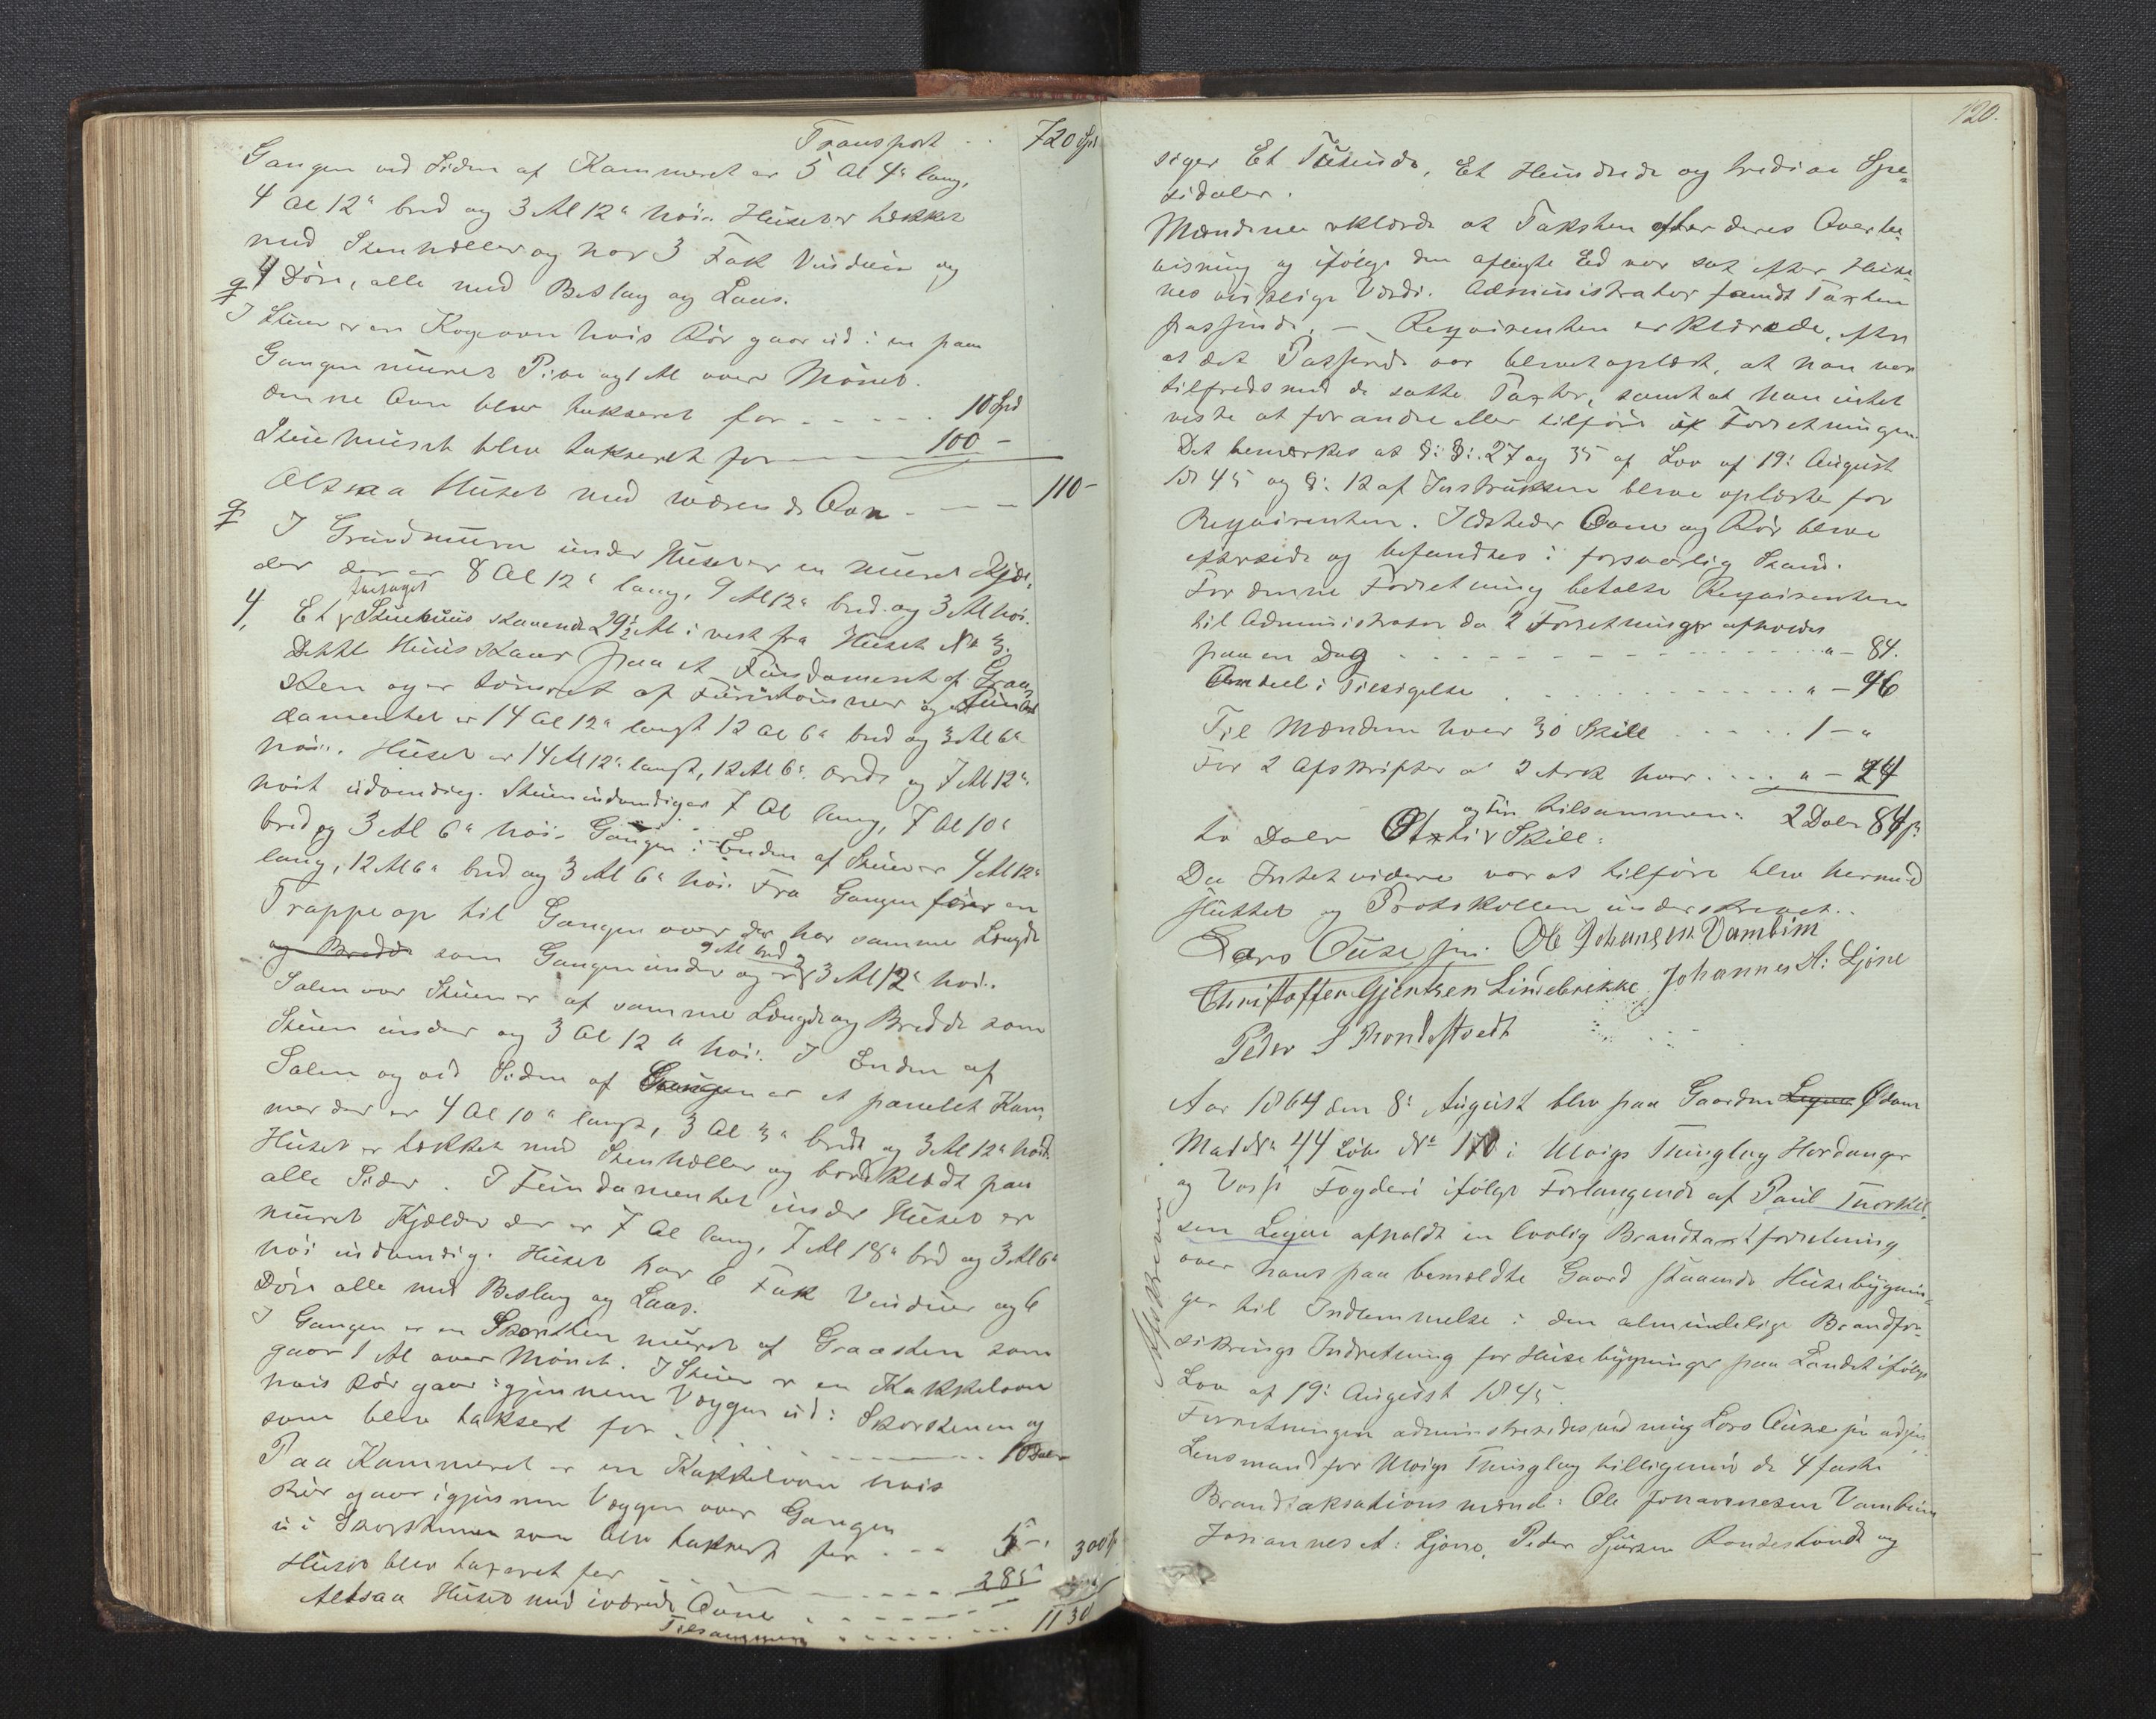 Transport . . 720 Spd
Gangen ved Siden af Kammeret er 5 Al 4" lang,
4 Al 12" bred og 3 Al 12" höi. Huset er tækket
med Stenheller og har 3 Fak Vinduer og
4 Döre, alle med Beslag og Laas.
I Stuen er en Kogeovn hvis Rör gaar ud i en paa
Gangen muret Pibe og 1 Al over Mönet.
denne Ovn blev takseret for - - - - 10 Spd
Stuehuset blev takseret for - - - 100 -
Altsaa Huset med værende Ovn - - - 110 -
I Grundmuren under Huset er en muret Kjæl-
der der er 8 Al 12" lang, 9 Al 12" bred og 3 Al höi.
4, Et toetaget Stuehuus staaende 29½ Al i vest fra Huset No 3.
Dette Huus staar paa et Fundament af Graa-
sten og er tömret af Furutömmer og Fun-
damentet er 14 Al 12" langt 12 Al 6" bred og 3 Al 6"
höi. Huset er 14 Al 12" langt, 12 Al 6" bredt og 7 Al 12"
höit udvendig. Stuen indvendig er 7 Al lang, 7 Al 10"
bred og 3 Al 6" höi. Gangen i Enden af Stuen er 4 Al 12"
lang, 12 Al 6" bred og 3 Al 6" höi. Fra Gangen förer en
Trappe op til Gangen over der har samme Længde
og Bredde som Gangen under og er 9 Al bred 3 Al 12" höi.
Salen over Stuen er af samme Længde og Bredde som
Stuen under og 3 Al 12" höi. I Enden af
Salen og ved Siden af Gangen er et panelet Kam-
mer der er 4 Al 10" langt, 3 Al 3" bredt og 3 Al 12" höit.
Huset er tækket med Stenheller og bordklædt paa
alle Sider. I Fundamentet under Huset er
muret Kjælder der er 7 Al lang, 7 Al 18" bred og 3 Al 6"
höi indvendig. Huset har 6 Fak Vinduer og 6
Döre alle med Beslag og Laas.
I Gangen er en Skorsten muret af Graasten som
gaar 1 Al over Mönet. I Stuen er en Kakkelovn
hvis Rör gaar igjennem Væggen ud i Skorstenen og
som blev taksert for - - - - 10 Daler
Paa Kammeret er en Kakkelovn hvis
Rör gaar igjennem Væggen over Gangen
ud i Skorstenen som blev taksert for - - 5 -
Huset blev taxeret for - - - 285
Altsaa Huset med ibærende Ovne - - - 300
Tilsammen - - - 1130
120.
siger Et Tusinde, Et Hundrede og tredive Spe-
sidaler.
Mændene erklærde at Taksten efter deres Overbe-
visning og ifölge den aflagte Ed var sat efter Huse-
nes virklige Værdi. Administrator fandt Taxten
passende. — Reqvirenten erklærede, efter
at det Passerede var blevet oplæst, at han var
tilfreds med de satte Taxter, samt at han intet
viste at forandre eller tilföie ved Forretningen.
Det bemærkes at §: §: 27 og 35 af Lov af 19: August
1845 og §: 12 af Instruksen bleve oplæste for
Reqvirenten. Ildsteder Ovne og Rör bleve
efterseede og befandtes i forsvarlig Stand.
For denne Forretning betalte Reqvirenten
til Administrator da 2 Forretninger afholdes
paa en Dag - - - - - - " - 84.
Andeel i Tilsigelse . . . . . . " - 96
Til Mændene hver 30 Skill . . . . . 1 - "
For 2 Afskrifter a 2 Ark hver . . . . " - 24
tilsammen: 2 Daler 84 ß
to Daler Otteti og fire Skill:
Da Intet videre var at tilföie blev hermed
sluttet og Protokollen underskrevet..
Lars Ouse jun. Ole Johansen Vambeim
Christoffer Gjertsen Lindebrekke Johannes A: Ljöne
Peder S Rondestvedt
Aar 1864 den 8: August blev paa Gaarden Legene Ødven
Mat No 44 Löbe No 170 i Ulvigs Thinglag Hardanger
og Voss Fogderi ifölge Forlangende af Paul Thorkel-
sen Legene afholdt en lovlig Brandtaxtforretning
over hans paa bemældte Gaard staaende Husebygnin-
ger til Indlemmelse i den almindelige Brandfor-
sikrings Indretning for Husebygninger paa Landet ifölge
Lov af 19: August 1845.
Forretningen administreredes ved mig Lars Ouse jun
Lensmand for Ulvigs Thinglag tilligemed de 4 faste
Brandtaksationsmænd: Ole Johannesen Vambeim
Johannes A: Ljöne, Peder Sjursen Rondestvedt og
Afskreven